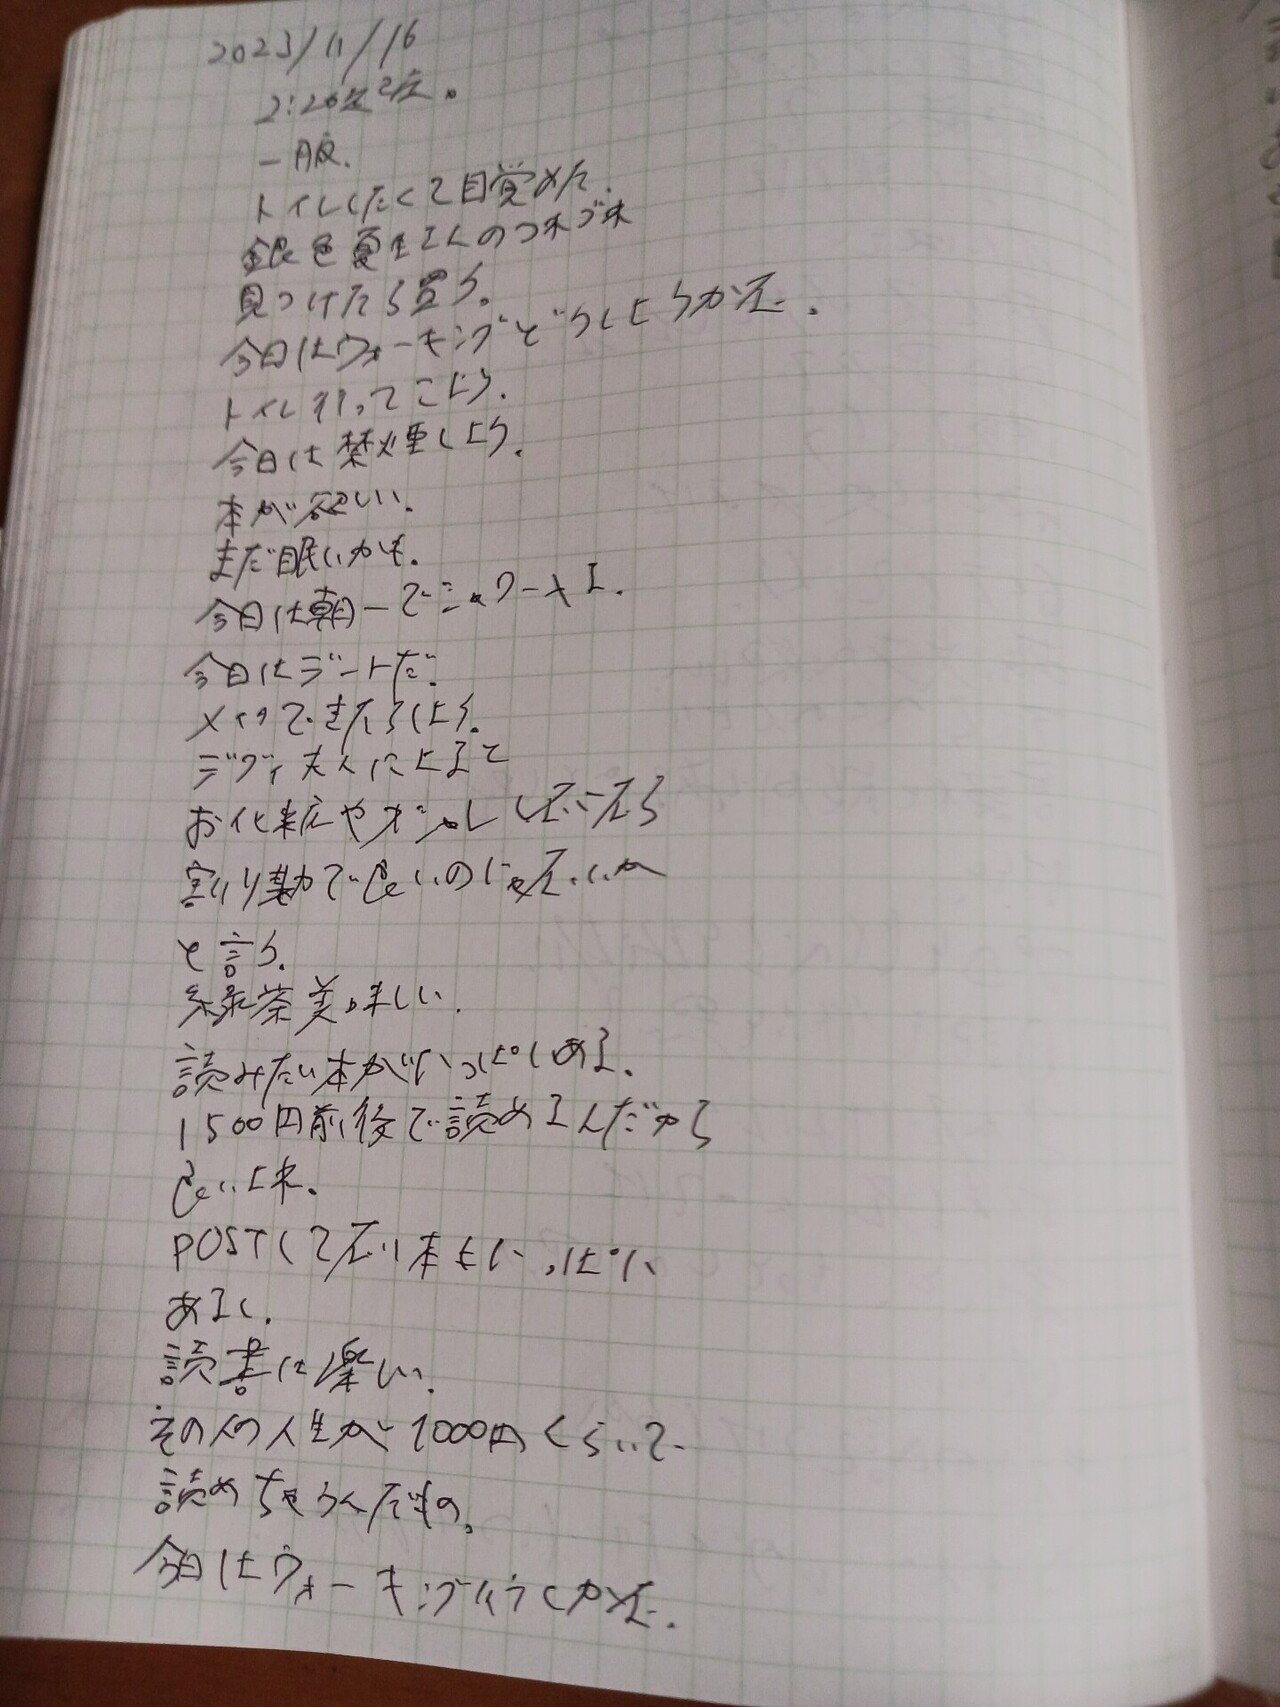 2023/11/16
2:26起床。
一服。
トイレしたくて目覚めた。
銀色夏生さんのつれづれ
見つけたら買う。
今日はウォーキングどうしようかな。
トイレ行ってこよう。
今日は禁煙しよう。
本が欲しい。
まだ眠いかも。
今日は朝一でシャワー入る。
今日はデートだ。
メイクできたらしよう。
デヴィ夫人によると
お化粧やオシャレしないなら
割り勘で良いのじゃないか
と言う。
緑茶美味しい。
読みたい本がいっぱいある。
1500円前後で読めるんだから
良いよね。
POSTしてない本もいっぱい
あるし。
読書は楽しい。
その人の人生が1000円くらいで
読めちゃうんだもの。
今日はウォーキング行くかな。